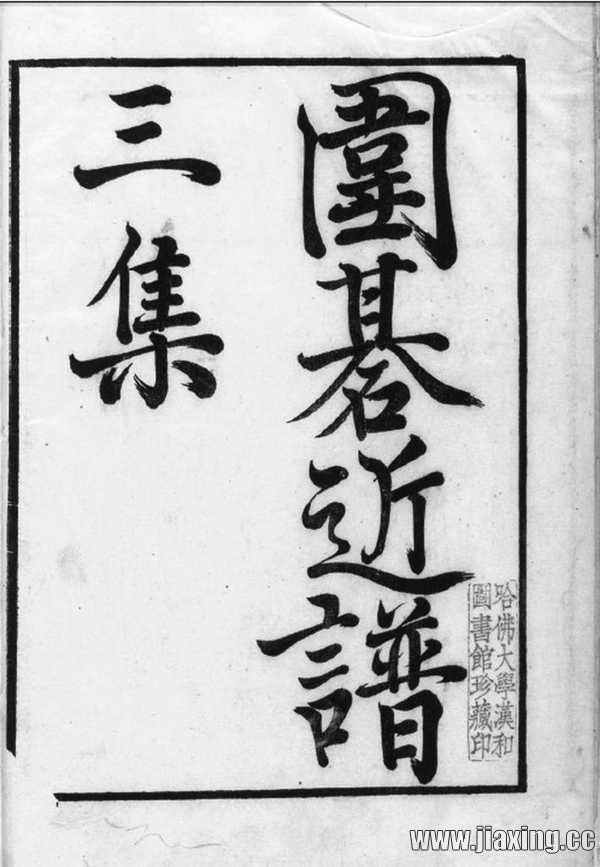 圍碁近譜
三集
哈佛大學漢和
圖書館珍藏印
www.jiaxing.cc